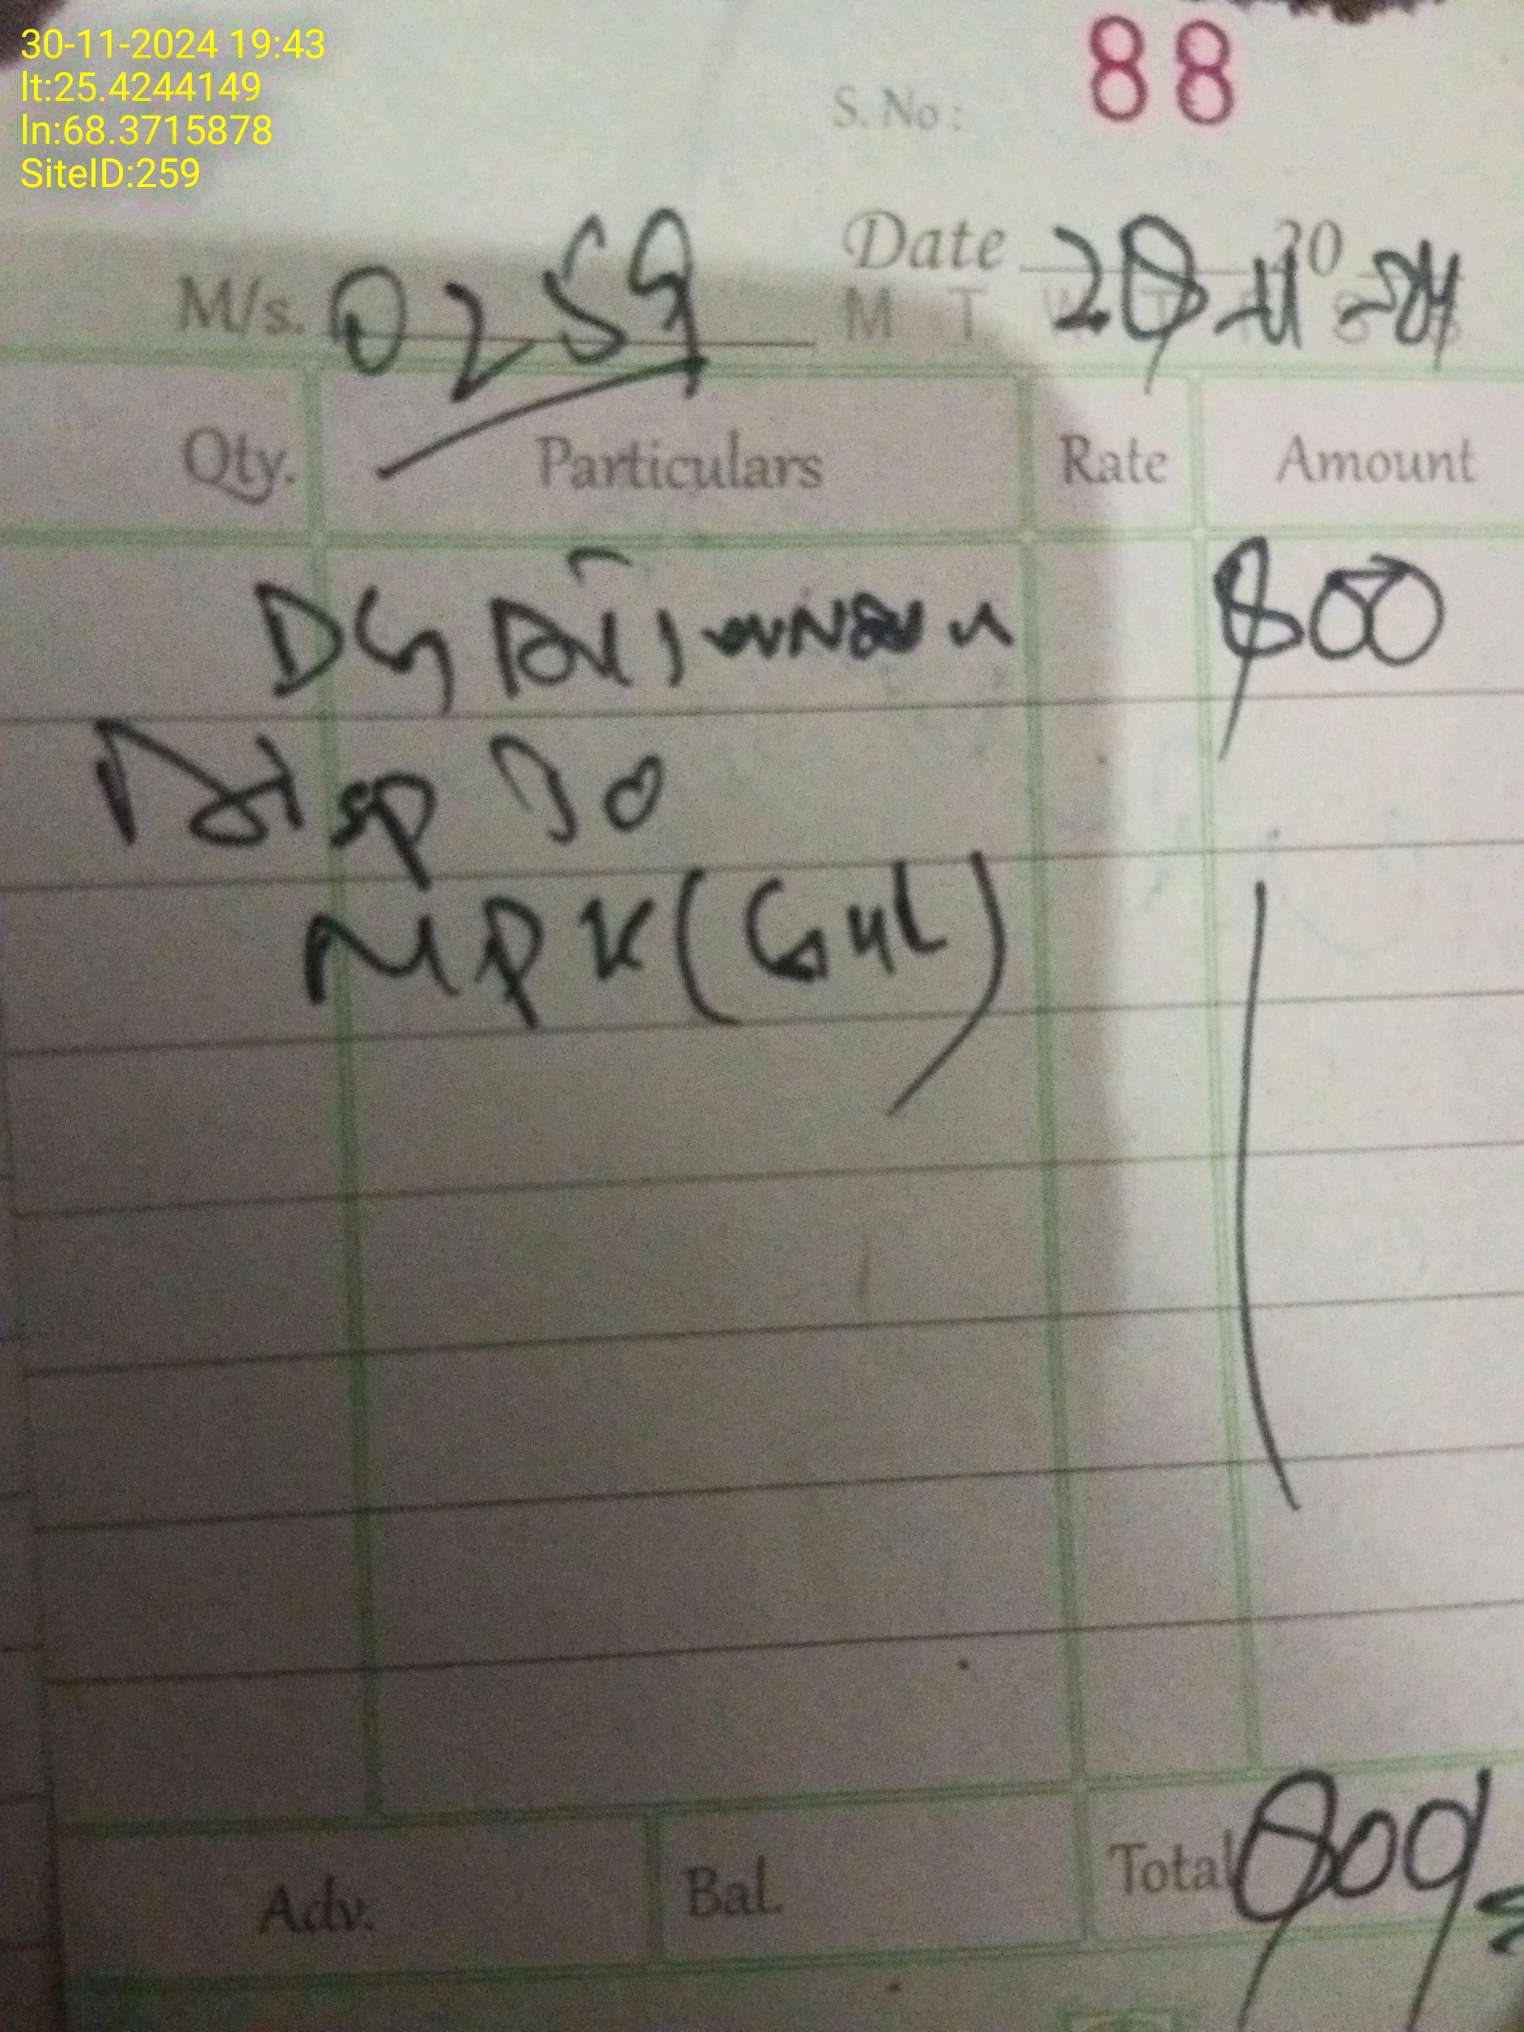 30-11-2024 19:43
lt:25.4244149
ln:68.3715878
SiteID:259
S. No: 88
M/s. 0259 Date 28-11-24
20
M T
Qty. Particulars Rate Amount
DG 800
Disp To
MPK (Gul)
Adv. Bal. Total 800/=